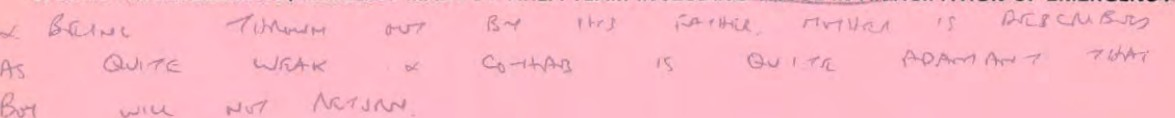 & BEING THROWN OUT BY HIS FATHER. MOTHER IS DESCRIBED
AS QUITE WEAK & COHAB IS QUITE ADAMANT THAT
BOY WILL NOT RETURN.